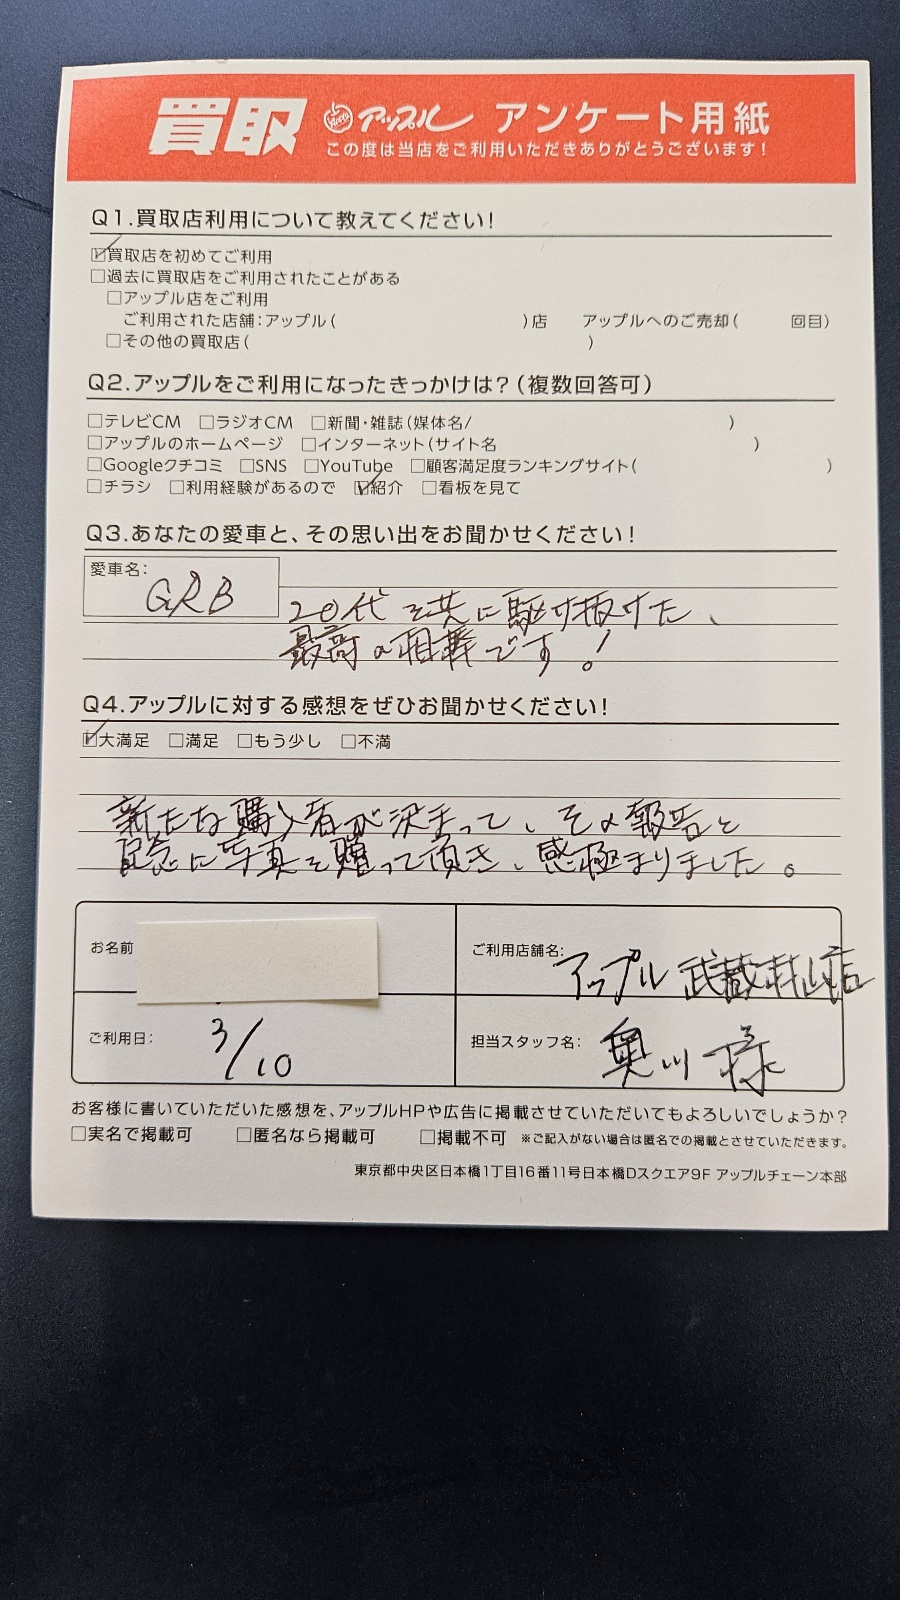 買取 アップル アンケート用紙
この度は当店をご利用いただきありがとうございます!
Q1.買取店利用について教えてください!
☑買取店を初めてご利用
□過去に買取店をご利用されたことがある
□アップル店をご利用
ご利用された店舗:アップル( )店 アップルへのご売却( 回目)
□その他の買取店( )
Q2.アップルをご利用になったきっかけは?(複数回答可)
□テレビCM □ラジオCM □新聞・雑誌(媒体名/ )
□アップルのホームページ □インターネット(サイト名 )
□Googleクチコミ □SNS □YouTube □顧客満足度ランキングサイト( )
□チラシ □利用経験があるので ☑紹介 □看板を見て
Q3.あなたの愛車と、その思い出をお聞かせください!
愛車名:
GRB
20代を共に駆け抜けた、
最高の相棒です!
Q4.アップルに対する感想をぜひお聞かせください!
☑大満足 □満足 □もう少し □不満
新たな購入者が決まって、その報告と
記念に写真を贈って頂き、感極まりました。
お名前
ご利用店舗名:
アップル 武蔵村山店
ご利用日:
3/10
担当スタッフ名:
奥川 様
お客様に書いていただいた感想を、アップルHPや広告に掲載させていただいてもよろしいでしょうか?
□実名で掲載可 □匿名なら掲載可 □掲載不可 ※ご記入がない場合は匿名での掲載とさせていただきます。
東京都中央区日本橋1丁目16番11号日本橋Dスクエア9F アップルチェーン本部